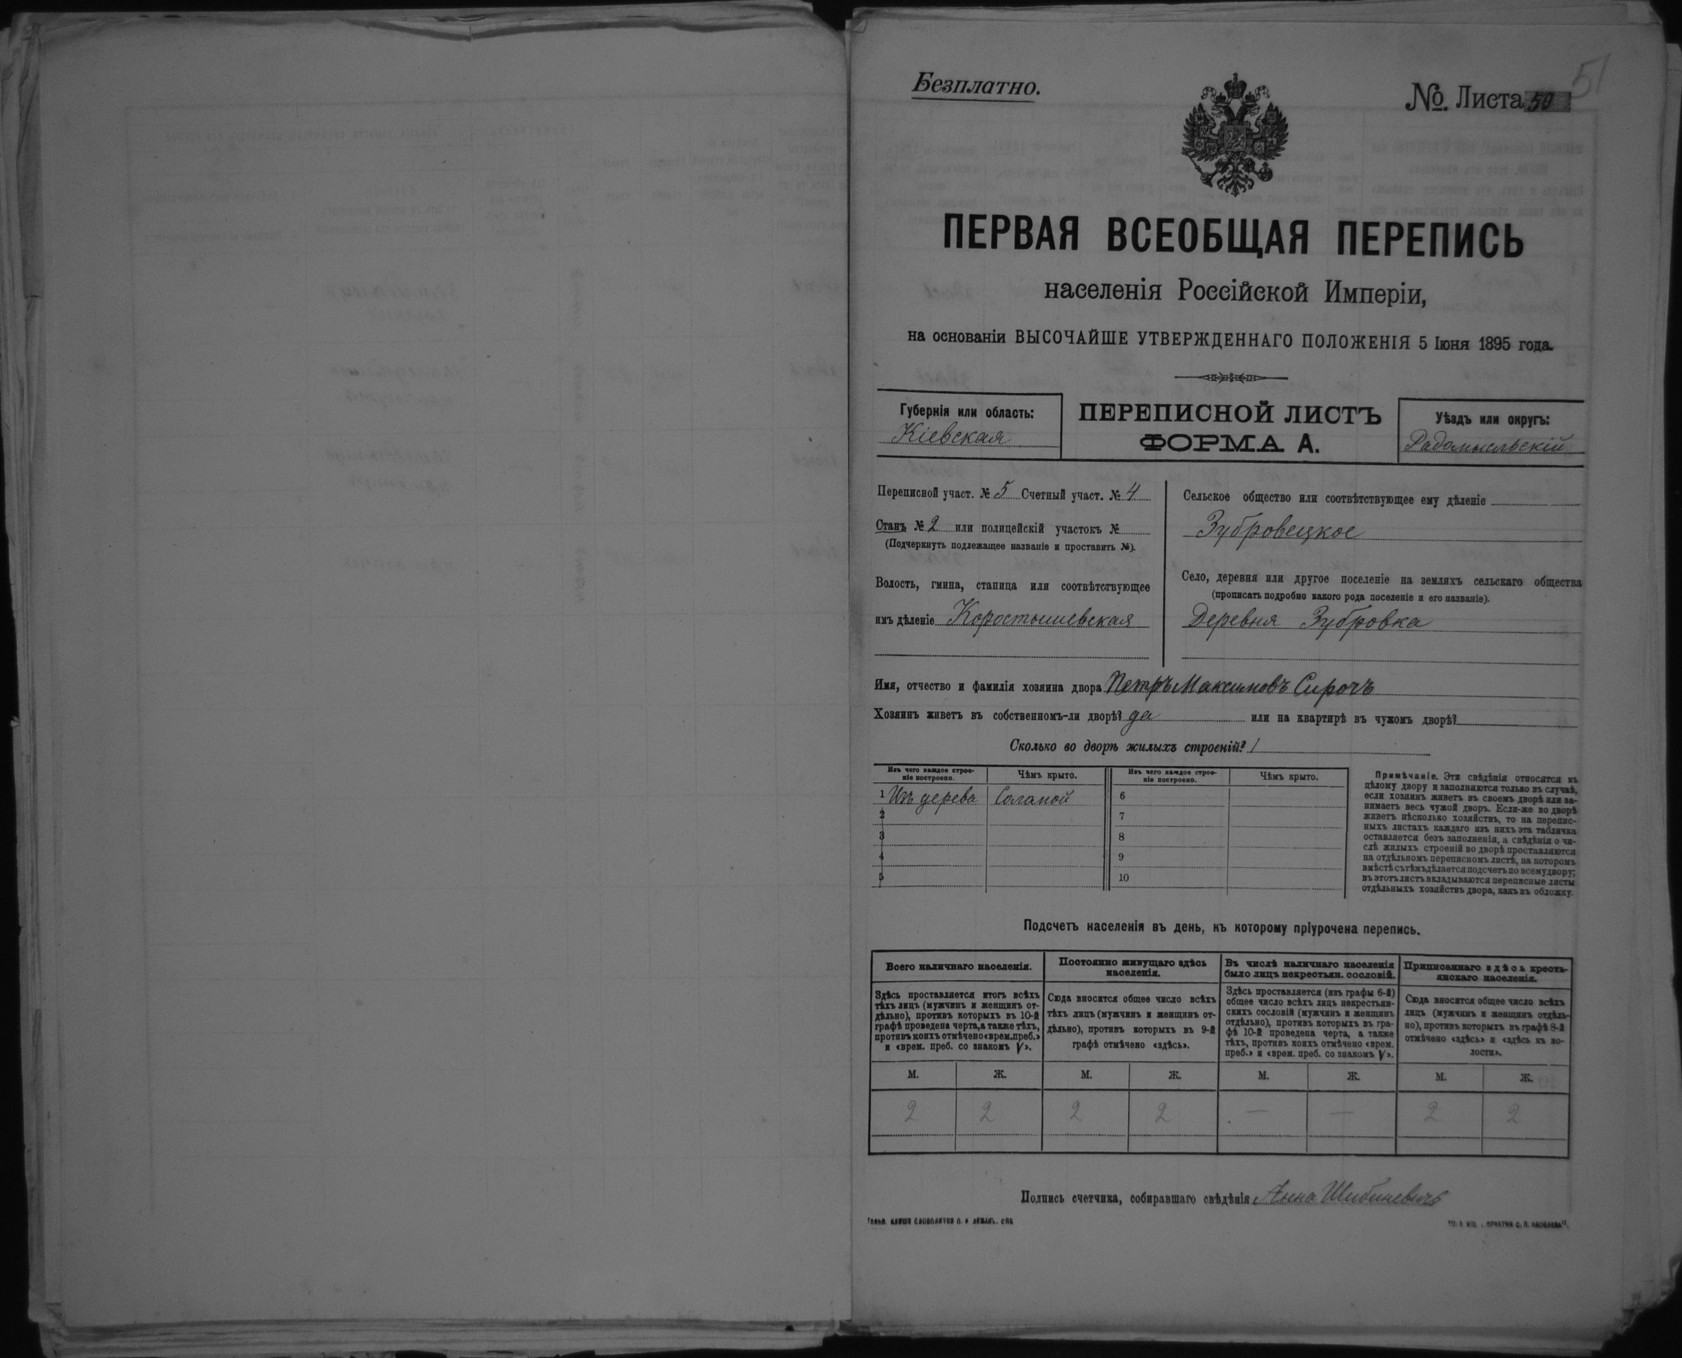 Безплатно.
№ Листа 50
51
ПЕРВАЯ ВСЕОБЩАЯ ПЕРЕПИСЬ
населенія Россійской Имперіи,
на основаніи ВЫСОЧАЙШЕ УТВЕРЖДЕННАГО ПОЛОЖЕНІЯ 5 Іюня 1895 года.
Губернія или область:
Кіевская
ПЕРЕПИСНОЙ ЛИСТЪ
ФОРМА А.
Уѣздъ или округъ:
Радомысльскій
Переписной участ. № 5 Счетный участ. № 4
Станъ № 2 или полицейскій участокъ №
(Подчеркнуть подлежащее названіе и проставить №).
Волость, гмина, станица или соотвѣтствующее
имъ дѣленіе Коростышевская
Сельское общество или соотвѣтствующее ему дѣленіе
Зубровецкое
Село, деревня или другое поселеніе на земляхъ сельскаго общества
(прописать подробно какого рода поселеніе и его названіе).
Деревня Зубровка
Имя, отчество и фамилія хозяина двора Петръ Максимовъ Сирочъ
Хозяинъ живетъ въ собственномъ-ли дворѣ? да или на квартирѣ въ чужомъ дворѣ?
Сколько во дворѣ жилыхъ строеній? 1
Изъ чего каждое строеніе построено.
Чѣмъ крыто.
Изъ чего каждое строеніе построено.
Чѣмъ крыто.
1 Изъ дерева Соламой
2
3
4
5
6
7
8
9
10
Примѣчаніе. Эти свѣдѣнія относятся къ
цѣлому двору и заполняются только въ случаѣ,
если хозяинъ живетъ въ своемъ дворѣ или за-
нимаетъ весь чужой дворъ. Если-же во дворѣ
живетъ нѣсколько хозяйствъ, то на перепис-
ныхъ листахъ каждаго изъ нихъ эта табличка
оставляется безъ заполненія, а свѣдѣнія о чи-
слѣ жилыхъ строеній во дворѣ проставляются
на отдѣльномъ переписномъ листѣ, на которомъ
вмѣстѣ съ тѣмъ дѣлается подсчетъ по всему двору;
въ этотъ листъ вкладываются переписные листы
отдѣльныхъ хозяйствъ двора, какъ въ обложку.
Подсчетъ населенія въ день, къ которому пріурочена перепись.
Всего наличнаго населенія.
Здѣсь проставляется итогъ всѣхъ
тѣхъ лицъ (мужчинъ и женщинъ от-
дѣльно), противъ которыхъ въ 10-й
графѣ проведена черта, а также тѣхъ,
противъ коихъ отмѣчено «врем. преб.»
и «врем. преб. со знакомъ V».
Постоянно живущаго здѣсь
населенія.
Сюда вносится общее число всѣхъ
тѣхъ лицъ (мужчинъ и женщинъ от-
дѣльно), противъ которыхъ въ 9-й
графѣ отмѣчено «здѣсь».
Въ числѣ наличнаго населенія
было лицъ некрестьян. сословій.
Здѣсь проставляется (изъ графы 6-й)
общее число всѣхъ лицъ некрестьян-
скихъ сословій (мужчинъ и женщинъ
отдѣльно), противъ которыхъ въ гра-
фѣ 10-й проведена черта, а также
тѣхъ, противъ коихъ отмѣчено «врем.
преб.» и «врем. преб. со знакомъ V».
Приписаннаго здѣсь кресть-
янскаго населенія.
Сюда вносится общее число всѣхъ
лицъ (мужчинъ и женщинъ отдѣль-
но), противъ которыхъ въ графѣ 8-й
отмѣчено «здѣсь» и «здѣсь къ во-
лости».
М. Ж. М. Ж. М. Ж. М. Ж.
2 2 2 2 — — 2 2
Подпись счетчика, собиравшаго свѣдѣнія Анна Шибиневичъ